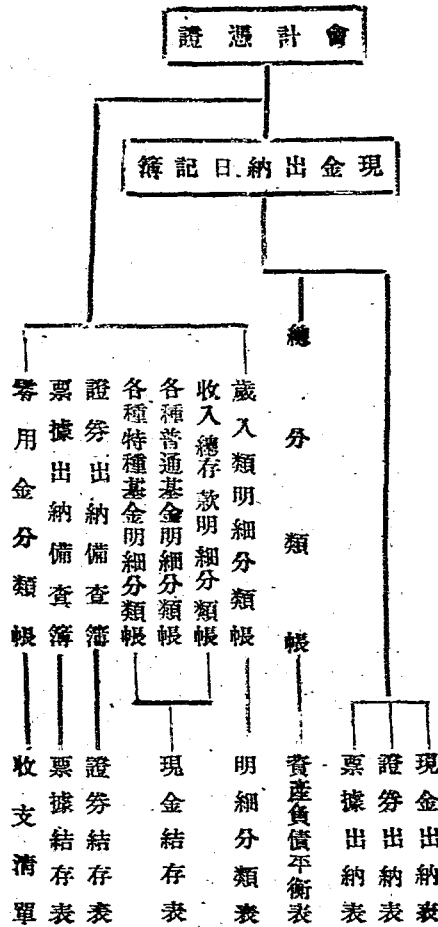 會計憑證
現金出納日記簿
總分類帳
歲入類明細分類帳
收入總存款明細分類帳
各種普通基金明細分類帳
各種特種基金明細分類帳
證券出納備查簿
票據出納備查簿
零用金分類帳
現金出納表
證券出納表
票據出納表
資產負債平衡表
明細分類表
現金結存表
證券結存表
票據結存表
收支清單